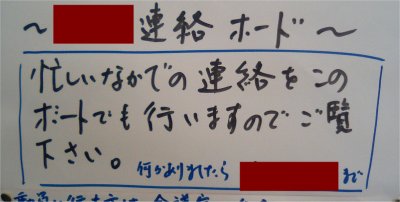 ～ 連絡 ボード ～
忙しいなかでの連絡をこの
ボードでも行いますのでご覧
下さい。
何かありましたら まで